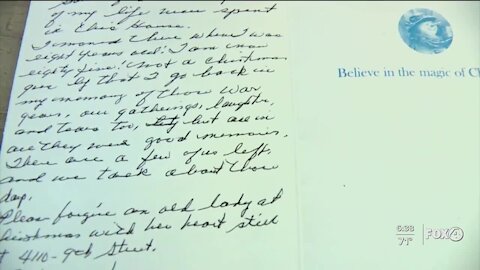 of my life were spent
in this house.
I moved there when I was
eight years old! I am now
eighty five! Not a Christmas
goes by that I go back in
my memory of those war
years, our gatherings, laughter,
and tears too, but all in
all they were good memories.
There are a few of us left,
and we talk about those
days.
Please forgive an old lady at
Christmas with her heart still
at 4110-9th Street.
Believe in the magic of C
6:38
71°
FOX 4